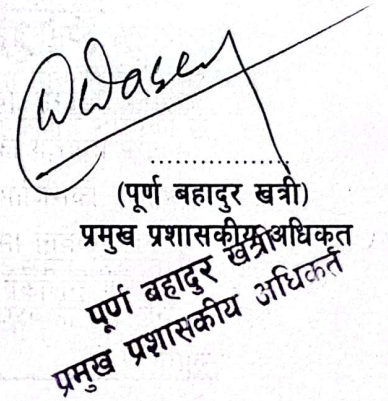 ....................
(पूर्ण बहादुर खत्री)
प्रमुख प्रशासकीय अधिकृत
पूर्ण बहादुर खत्री
प्रमुख प्रशासकीय अधिकर्त